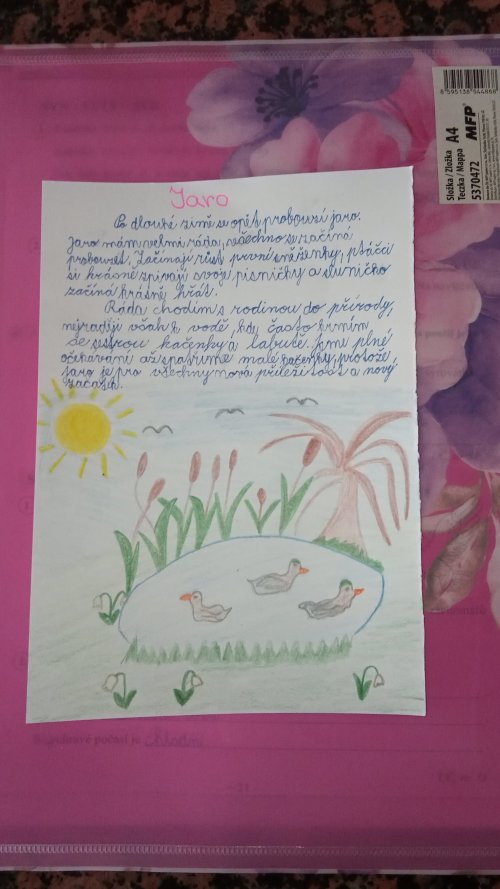 Jaro
Po dlouhé zimě se opět probouzí jaro.
Jaro mám velmi ráda, všechno se začíná
probouzet. Začínají růst první sněženky, ptáčci
si krásně zpívají svoje písničky a sluníčko
začíná krásně hřát.
Ráda chodím s rodinou do přírody,
nejraději však k vodě, kde často krmím
se sestrou kačenky a labutě. Jsme plné
očekávání až spatříme malé kačenky, protože
jaro je pro všechny nová příležitost a nový
začátek.
8 595138 544868
Složka / Zložka
Teczka / Mappa
A4
5370472
MFP
počasí je